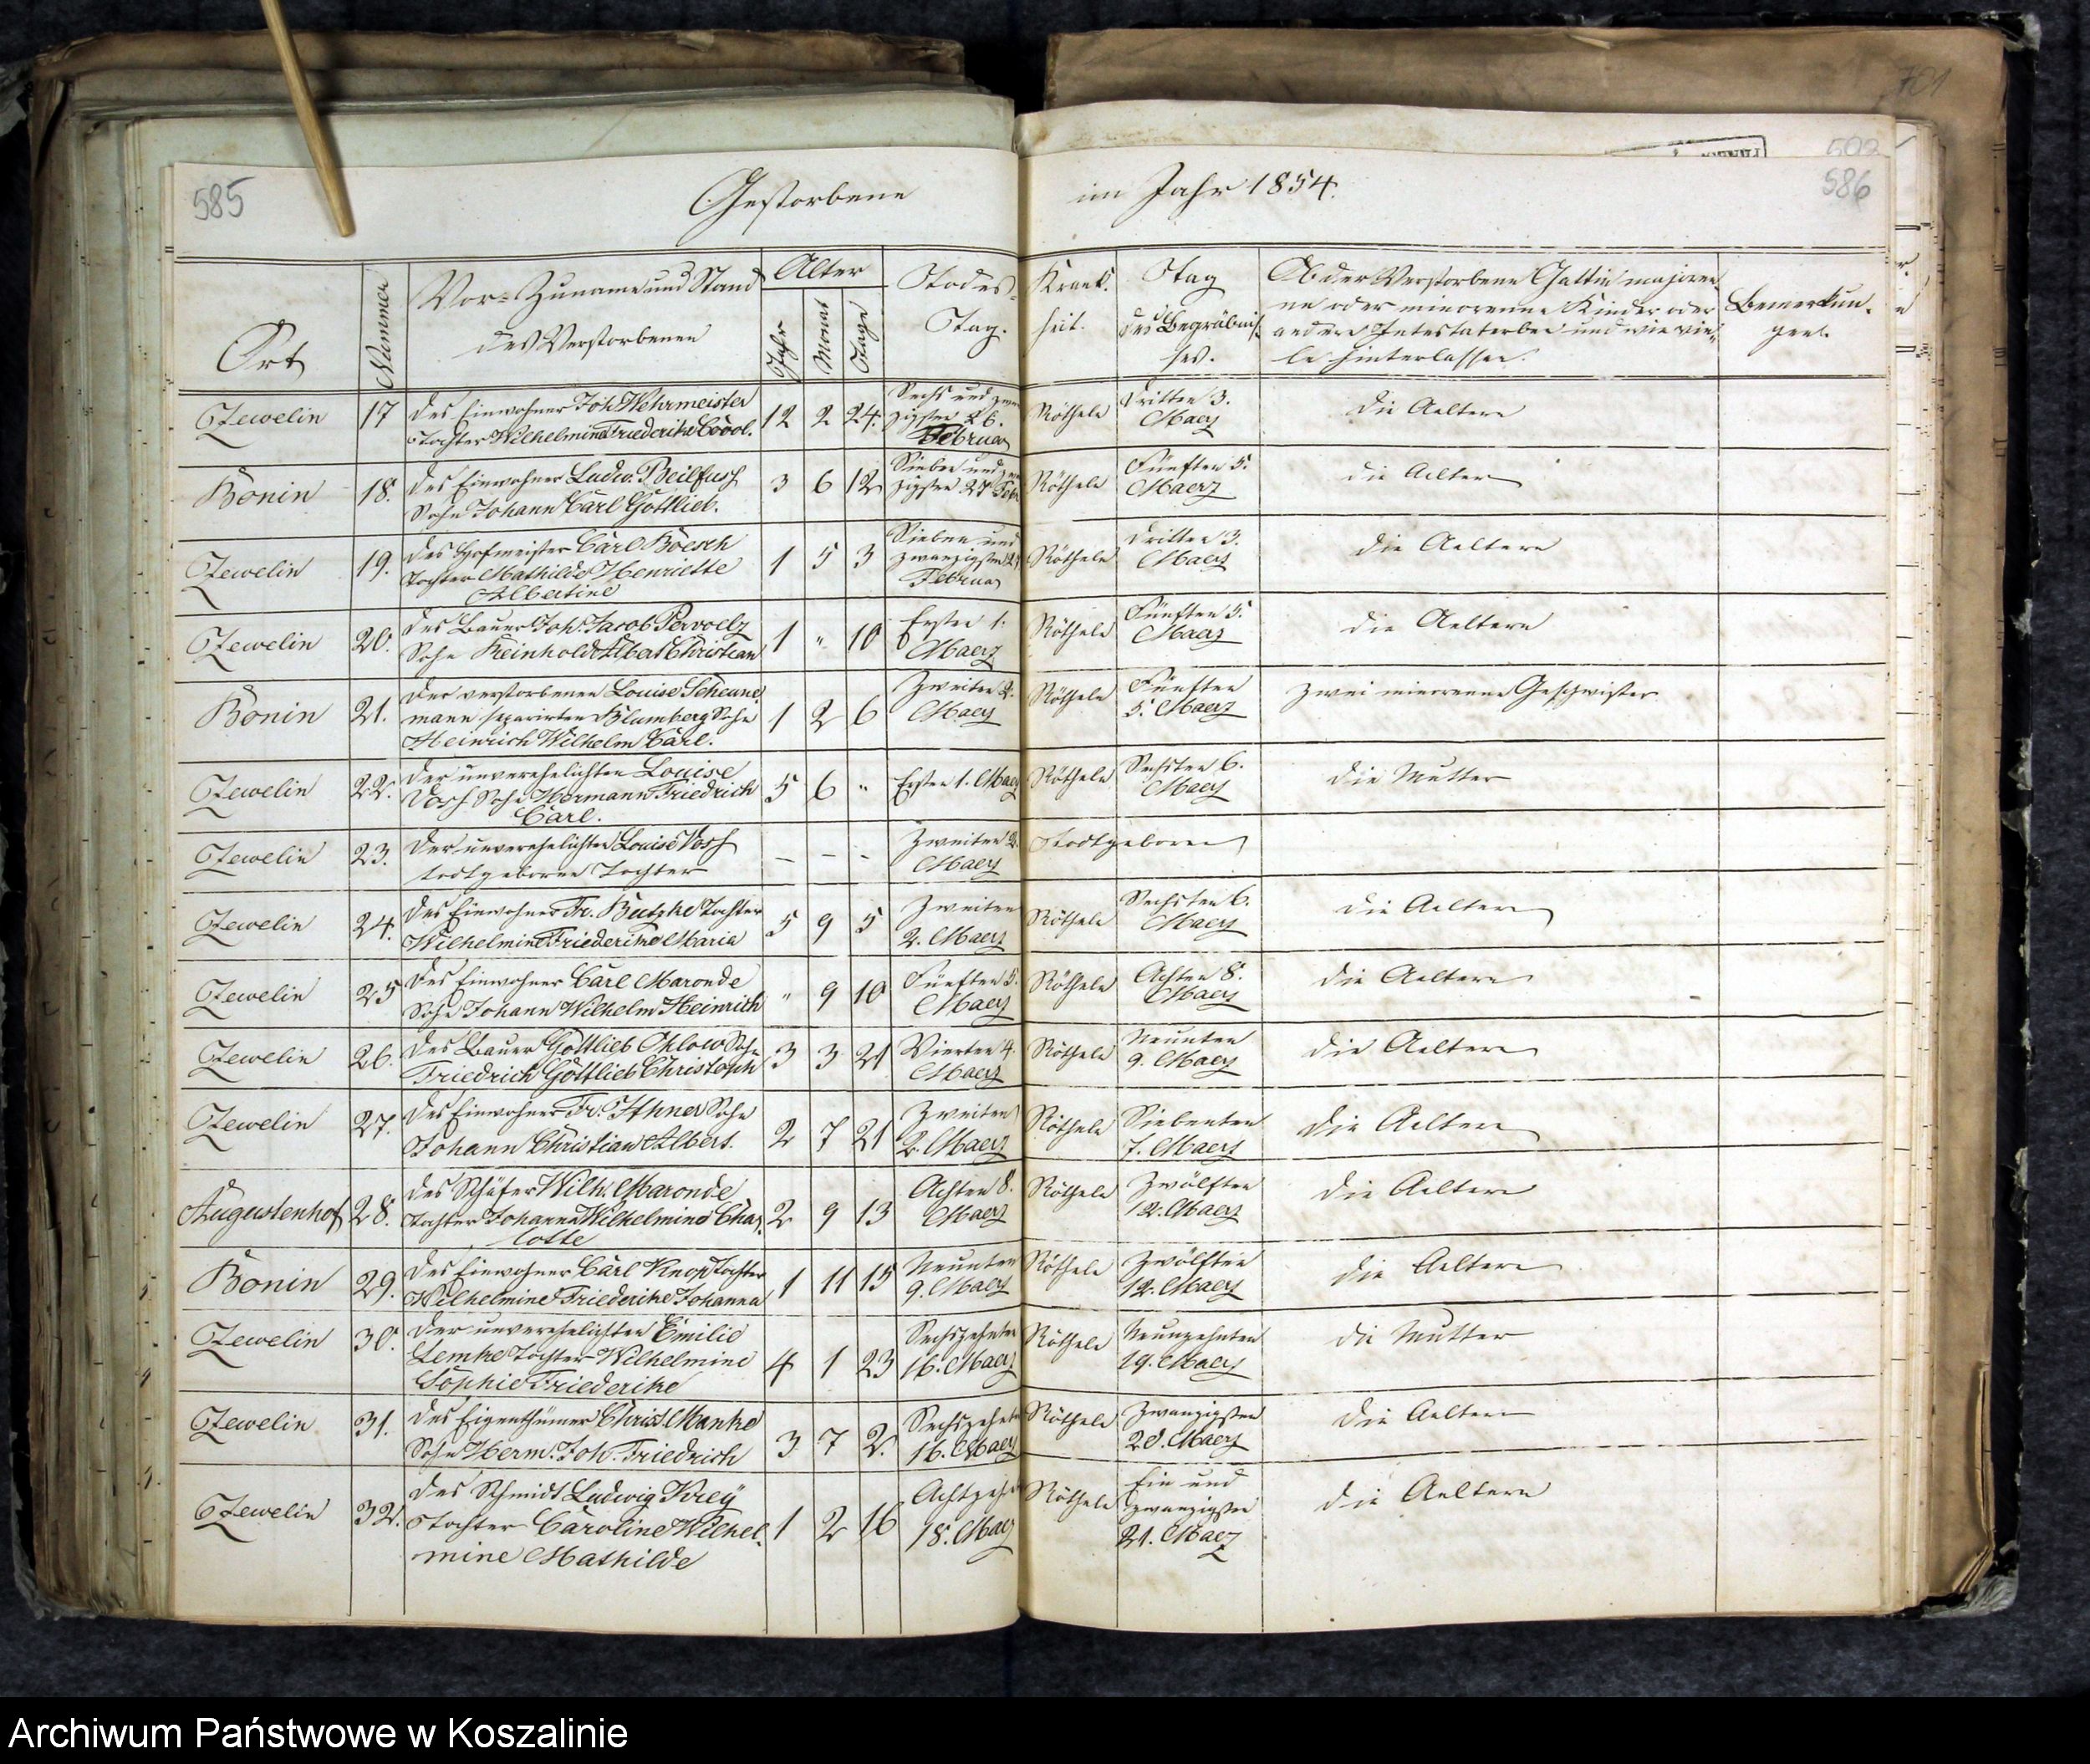 701
585
Gestorbene
im Jahr 1854.
502
586
Ort
Nummer
Vor- Zuname und Stand
des Verstorbenen
Alter
Jahr
Monat
Tage
Todes-
Tag.
Krank-
heit.
Tag
des Begräbnis-
ses.
Ob der Verstorbene Gattin majoren-
ne oder minorenne Kinder oder
andere Intestaterben und wie vie-
le hinterlassen.
Bemerkun-
gen.
Zewelin 17 des Einwohner Joh. Wehrmeister
Tochter Wilhelmine Friederike 12 2 24. Sechs und zwan-
zigsten 26.
Februar Rötheln Dritten 3.
Maerz die Aeltern
Bonin 18. des Einwohner Ludw. Beilfuss
Sohn Johann Carl Gottlieb. 3 6 12 Sieben und zwan-
zigsten 27. Febr. Rötheln Fünften 5.
Maerz die Aeltern
Zewelin 19. des Hofmeister Carl Boesch
Tochter Mathilde Henriette
Albertine 1 5 3 Sieben und
zwanzigsten 27
Februar Rötheln Dritten 3.
Maerz die Aeltern
Zewelin 20. des Bauer Joh. Jacob Pervoelz
Sohn Reinhold Albert Christian 1 " 10 Ersten 1.
Maerz Rötheln Fünften 5.
Maerz die Aeltern
Bonin 21. der verstorbenen Louise Scheune-
mann separirten Blumberg Sohn
Heinrich Wilhelm Carl. 1 2 6 Zweiten 2.
Maerz Rötheln Fünften
5. Maerz Zwei minorenne Geschwister
Zewelin 22. der unverehelichten Louise
Voss Sohn Hermann Friedrich
Carl. 5 6 " Ersten 1. Maerz Rötheln Sechsten 6.
Maerz die Mutter
Zewelin 23. der unverehelichten Louise Voss
todtgeborne Tochter - - - Zweiten 2.
Maerz Todtgeboren
Zewelin 24. des Einwohner Fr. Butzke Tochter
Wilhelmine Friederike Maria 5 9 5 Zweiten
2. Maerz Rötheln Sechsten 6.
Maerz die Aeltern
Zewelin 25 des Einwohner Carl Maronde
Sohn Johann Wilhelm Heinrich " 9 10 Fünften 5.
Maerz Rötheln Achten 8.
Maerz die Aeltern
Zewelin 26. des Bauer Gottlieb Ohlow Sohn
Friedrich Gottlieb Christoph 3 3 21 Vierten 4.
Maerz Rötheln Neunten
9. Maerz die Aeltern
Zewelin 27. des Einwohner Fr. Sohn
Johann Christian Albert. 2 7 21 Zweiten
2. Maerz Rötheln Siebenten
7. Maerz die Aeltern
Augustenhof 28. des Schäfer Wilh. Maronde
Tochter Johanna Wilhelmine Char-
lotte 2 9 13 Achten 8.
Maerz Rötheln Zwölften
12. Maerz die Aeltern
Bonin 29. des Einwohner Carl Knop Tochter
Wilhelmine Friederike Johanna 1 11 15 Neunten
9. Maerz Rötheln Zwölften
12. Maerz die Aeltern
Zewelin 30. der unverehelichten Emilie
Lemke Tochter Wilhelmine
Sophie Friederike 4 1 23 Sechszehnten
16. Maerz Rötheln Neunzehnten
19. Maerz die Mutter
Zewelin 31. des Eigenthümer Christ. Manke
Sohn Herm. Joh. Friedrich 3 7 2. Sechszehnten
16. Maerz Rötheln Zwanzigsten
20. Maerz die Aeltern
Zewelin 32. des Schmidt Ludwig Krey
Tochter Caroline Wilhel-
mine Mathilde 1 2 16 Achtzehn
18. Maerz Rötheln Ein und
zwanzigsten
21. Maerz die Aeltern
Archiwum Państwowe w Koszalinie